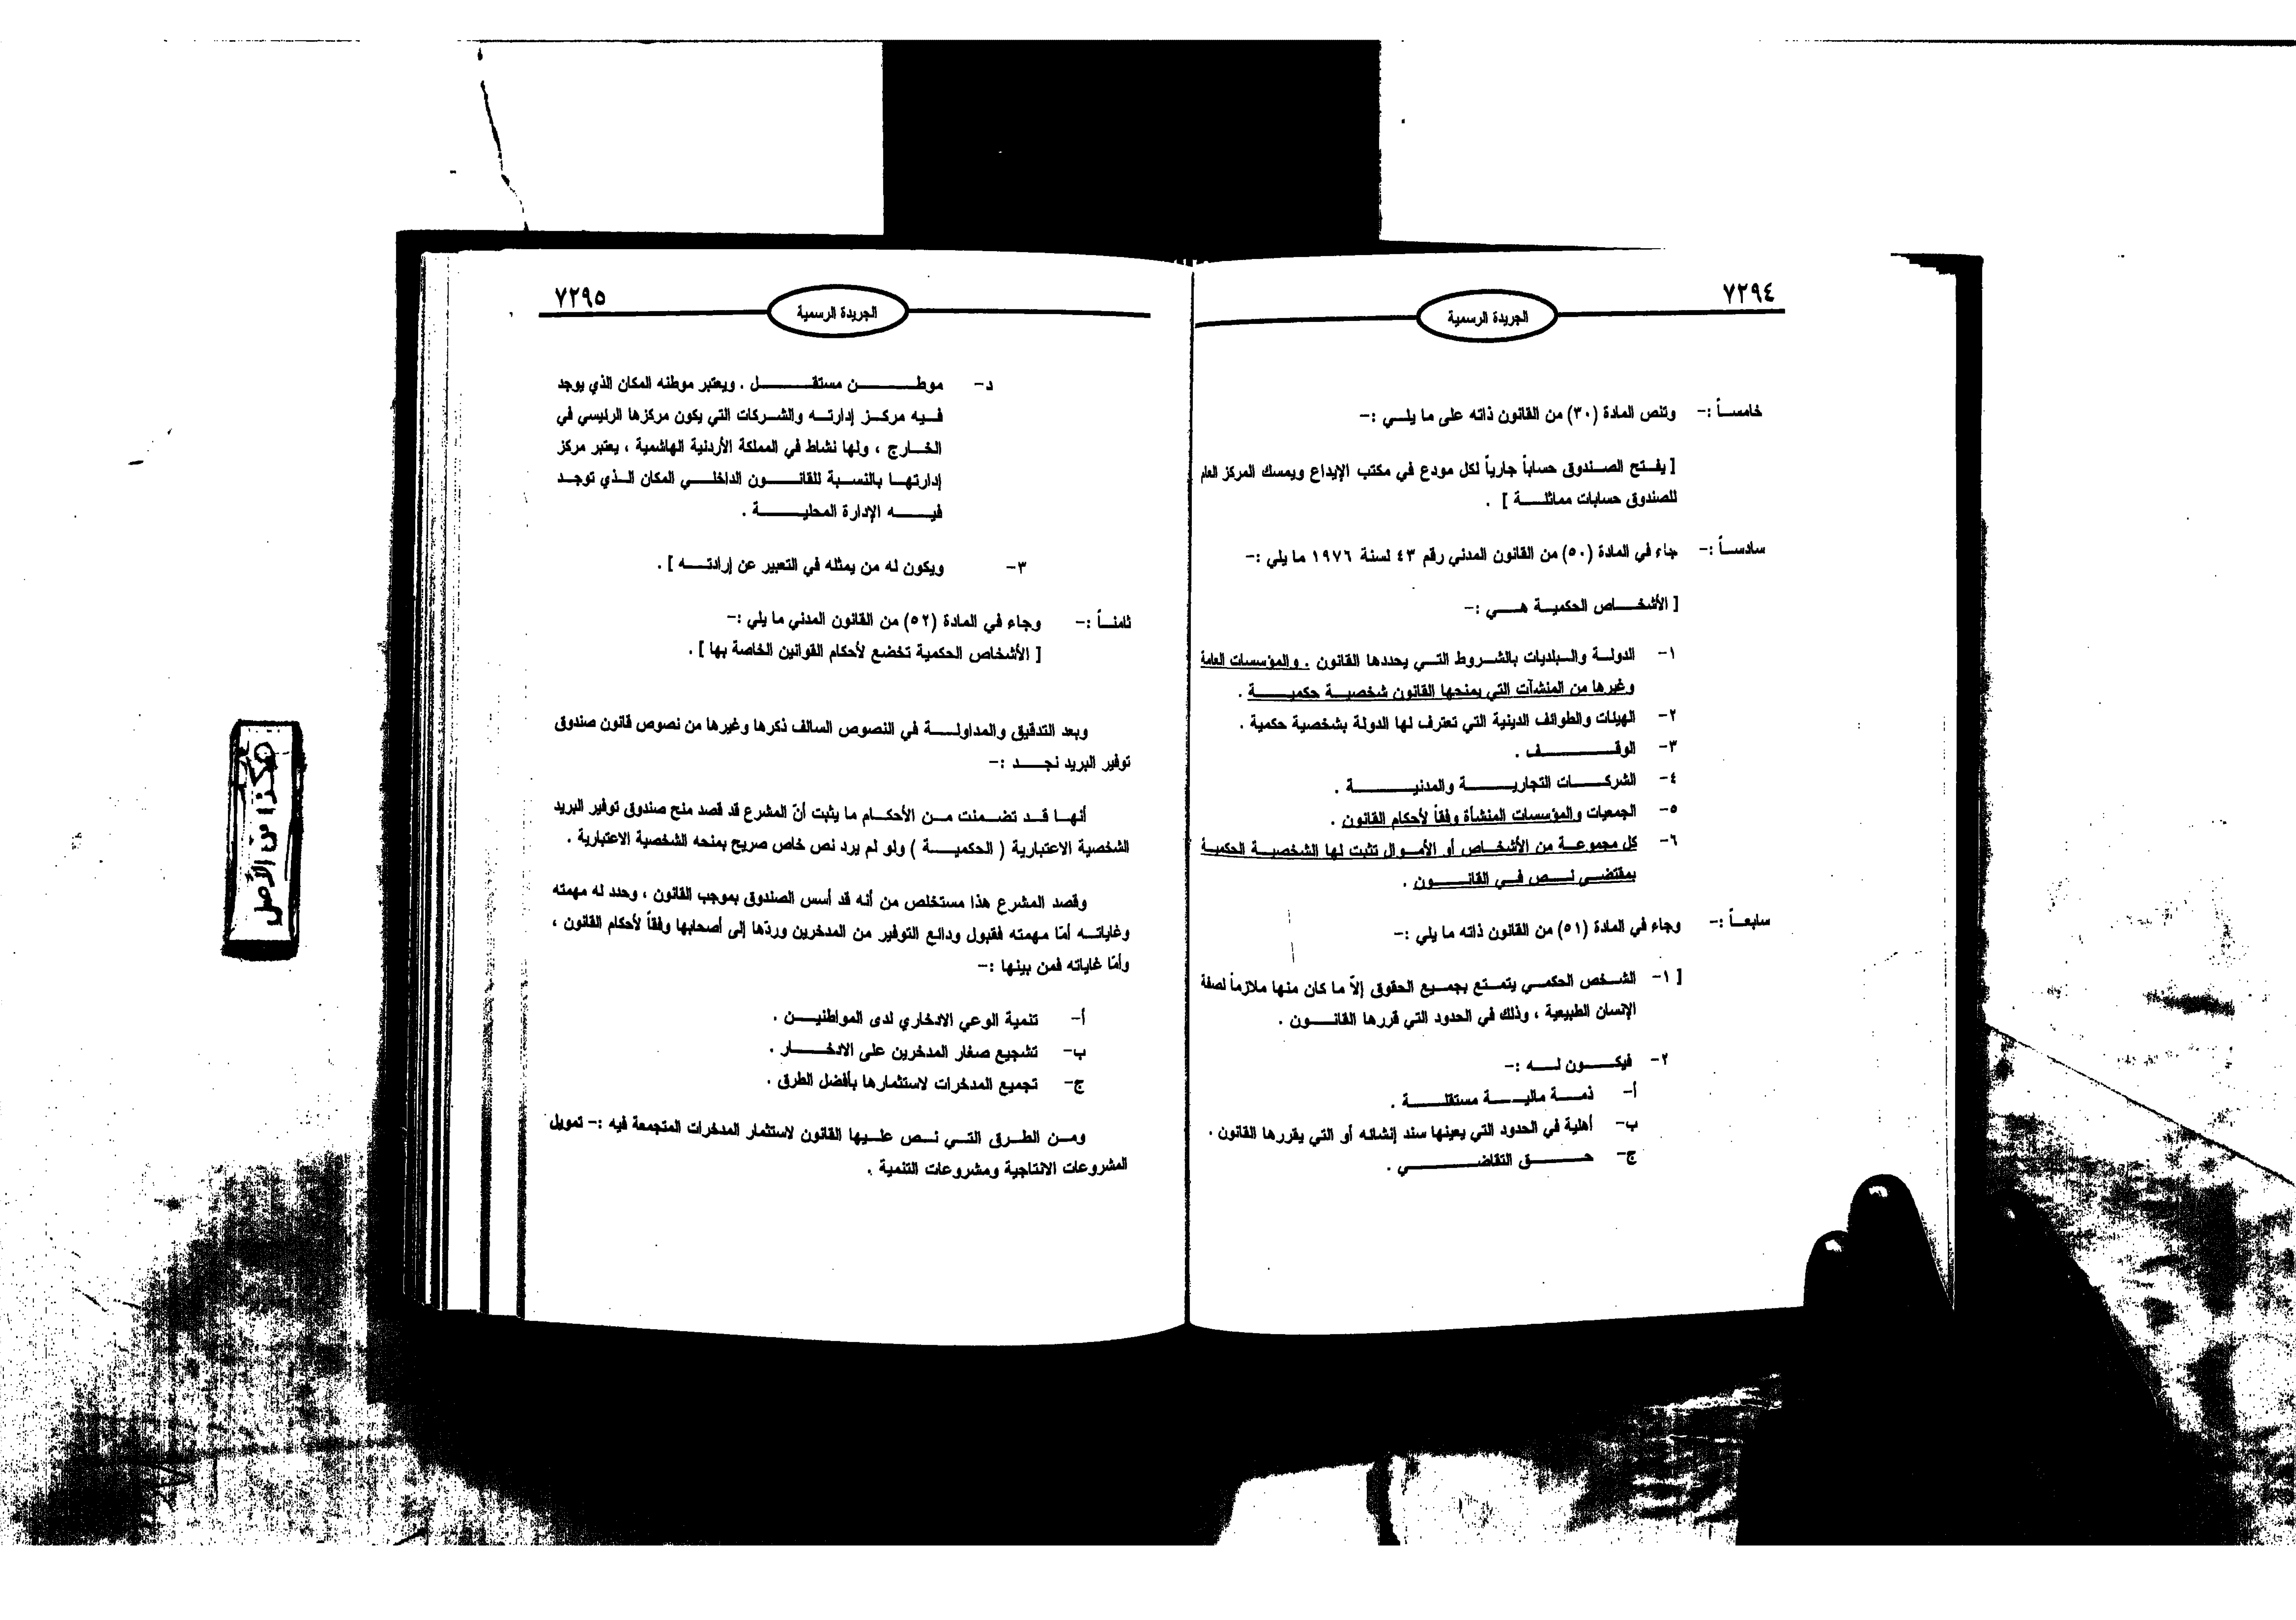 ٧٢٩٤
الجريدة الرسمية
خامساً :- وتنص المادة (٣٠) من القانون ذاته على ما يلي :-
[ يفتح الصندوق حساباً جارياً لكل مودع في مكتب الإيداع ويمسك المركز العام
للصندوق حسابات مماثلة ] .
سادساً :- جاء في المادة (٥٠) من القانون المدني رقم ٤٣ لسنة ١٩٧٦ ما يلي :-
[ الأشخاص الحكمية هي :-
١- الدولة والبلديات بالشروط التي يحددها القانون . والمؤسسات العامة
وغيرها من المنشآت التي يمنحها القانون شخصية حكمية .
٢- الهيئات والطوائف الدينية التي تعترف لها الدولة بشخصية حكمية .
٣- الوقف .
٤- الشركات التجارية والمدنية .
٥- الجمعيات والمؤسسات المنشأة وفقاً لأحكام القانون .
٦- كل مجموعة من الأشخاص أو الأموال تثبت لها الشخصية الحكمية
بمقتضى نص في القانون .
سابعاً :- وجاء في المادة (٥١) من القانون ذاته ما يلي :-
[ ١- الشخص الحكمي يتمتع بجميع الحقوق إلاّ ما كان منها ملازماً لصفة
الإنسان الطبيعية ، وذلك في الحدود التي قررها القانون .
٢- فيكون له :-
أ- ذمة مالية مستقلة .
ب- أهلية في الحدود التي يعينها سند إنشائه أو التي يقررها القانون .
ج- حق التقاضي .
٧٢٩٥
الجريدة الرسمية
د- موطن مستقل . ويعتبر موطنه المكان الذي يوجد
فيه مركز إدارته والشركات التي يكون مركزها الرئيسي في
الخارج ، ولها نشاط في المملكة الأردنية الهاشمية ، يعتبر مركز
إدارتها بالنسبة للقانون الداخلي المكان الذي توجد
فيه الإدارة المحلية .
٣- ويكون له من يمثله في التعبير عن إرادته ] .
ثامناً :- وجاء في المادة (٥٢) من القانون المدني ما يلي :-
[ الأشخاص الحكمية تخضع لأحكام القوانين الخاصة بها ] .
وبعد التدقيق والمداولة في النصوص السالف ذكرها وغيرها من نصوص قانون صندوق
توفير البريد نجد :-
أنها قد تضمنت من الأحكام ما يثبت أنّ المشرع قد قصد منح صندوق توفير البريد
الشخصية الاعتبارية ( الحكمية ) ولو لم يرد نص خاص صريح بمنحه الشخصية الاعتبارية .
وقصد المشرع هذا مستخلص من أنه قد أسس الصندوق بموجب القانون ، وحدد له مهمته
وغاياته أمّا مهمته فقبول ودائع التوفير من المدخرين وردّها إلى أصحابها وفقاً لأحكام القانون ،
وأمّا غاياته فمن بينها :-
أ- تنمية الوعي الادخاري لدى المواطنين .
ب- تشجيع صغار المدخرين على الادخار .
ج- تجميع المدخرات لاستثمارها بأفضل الطرق .
ومن الطرق التي نص عليها القانون لاستثمار المدخرات المتجمعة فيه :- تمويل
المشروعات الانتاجية ومشروعات التنمية .
هكذا من الأصل